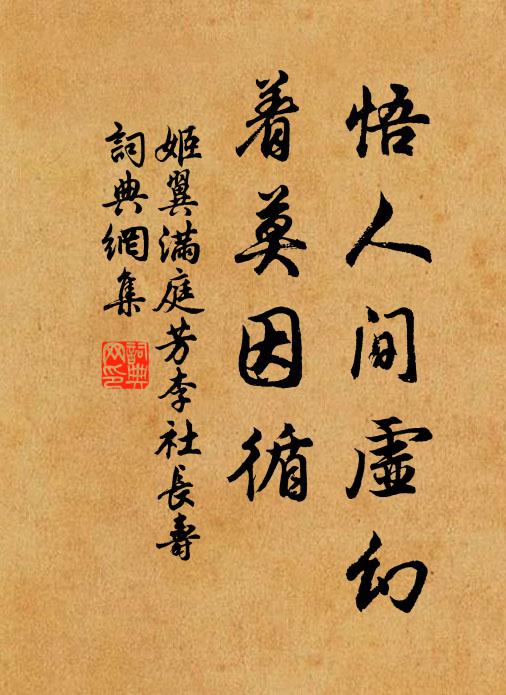 悟人间虛幻
着莫因循
姬翼满庭芳李社長壽
詞典網集
詞典网印